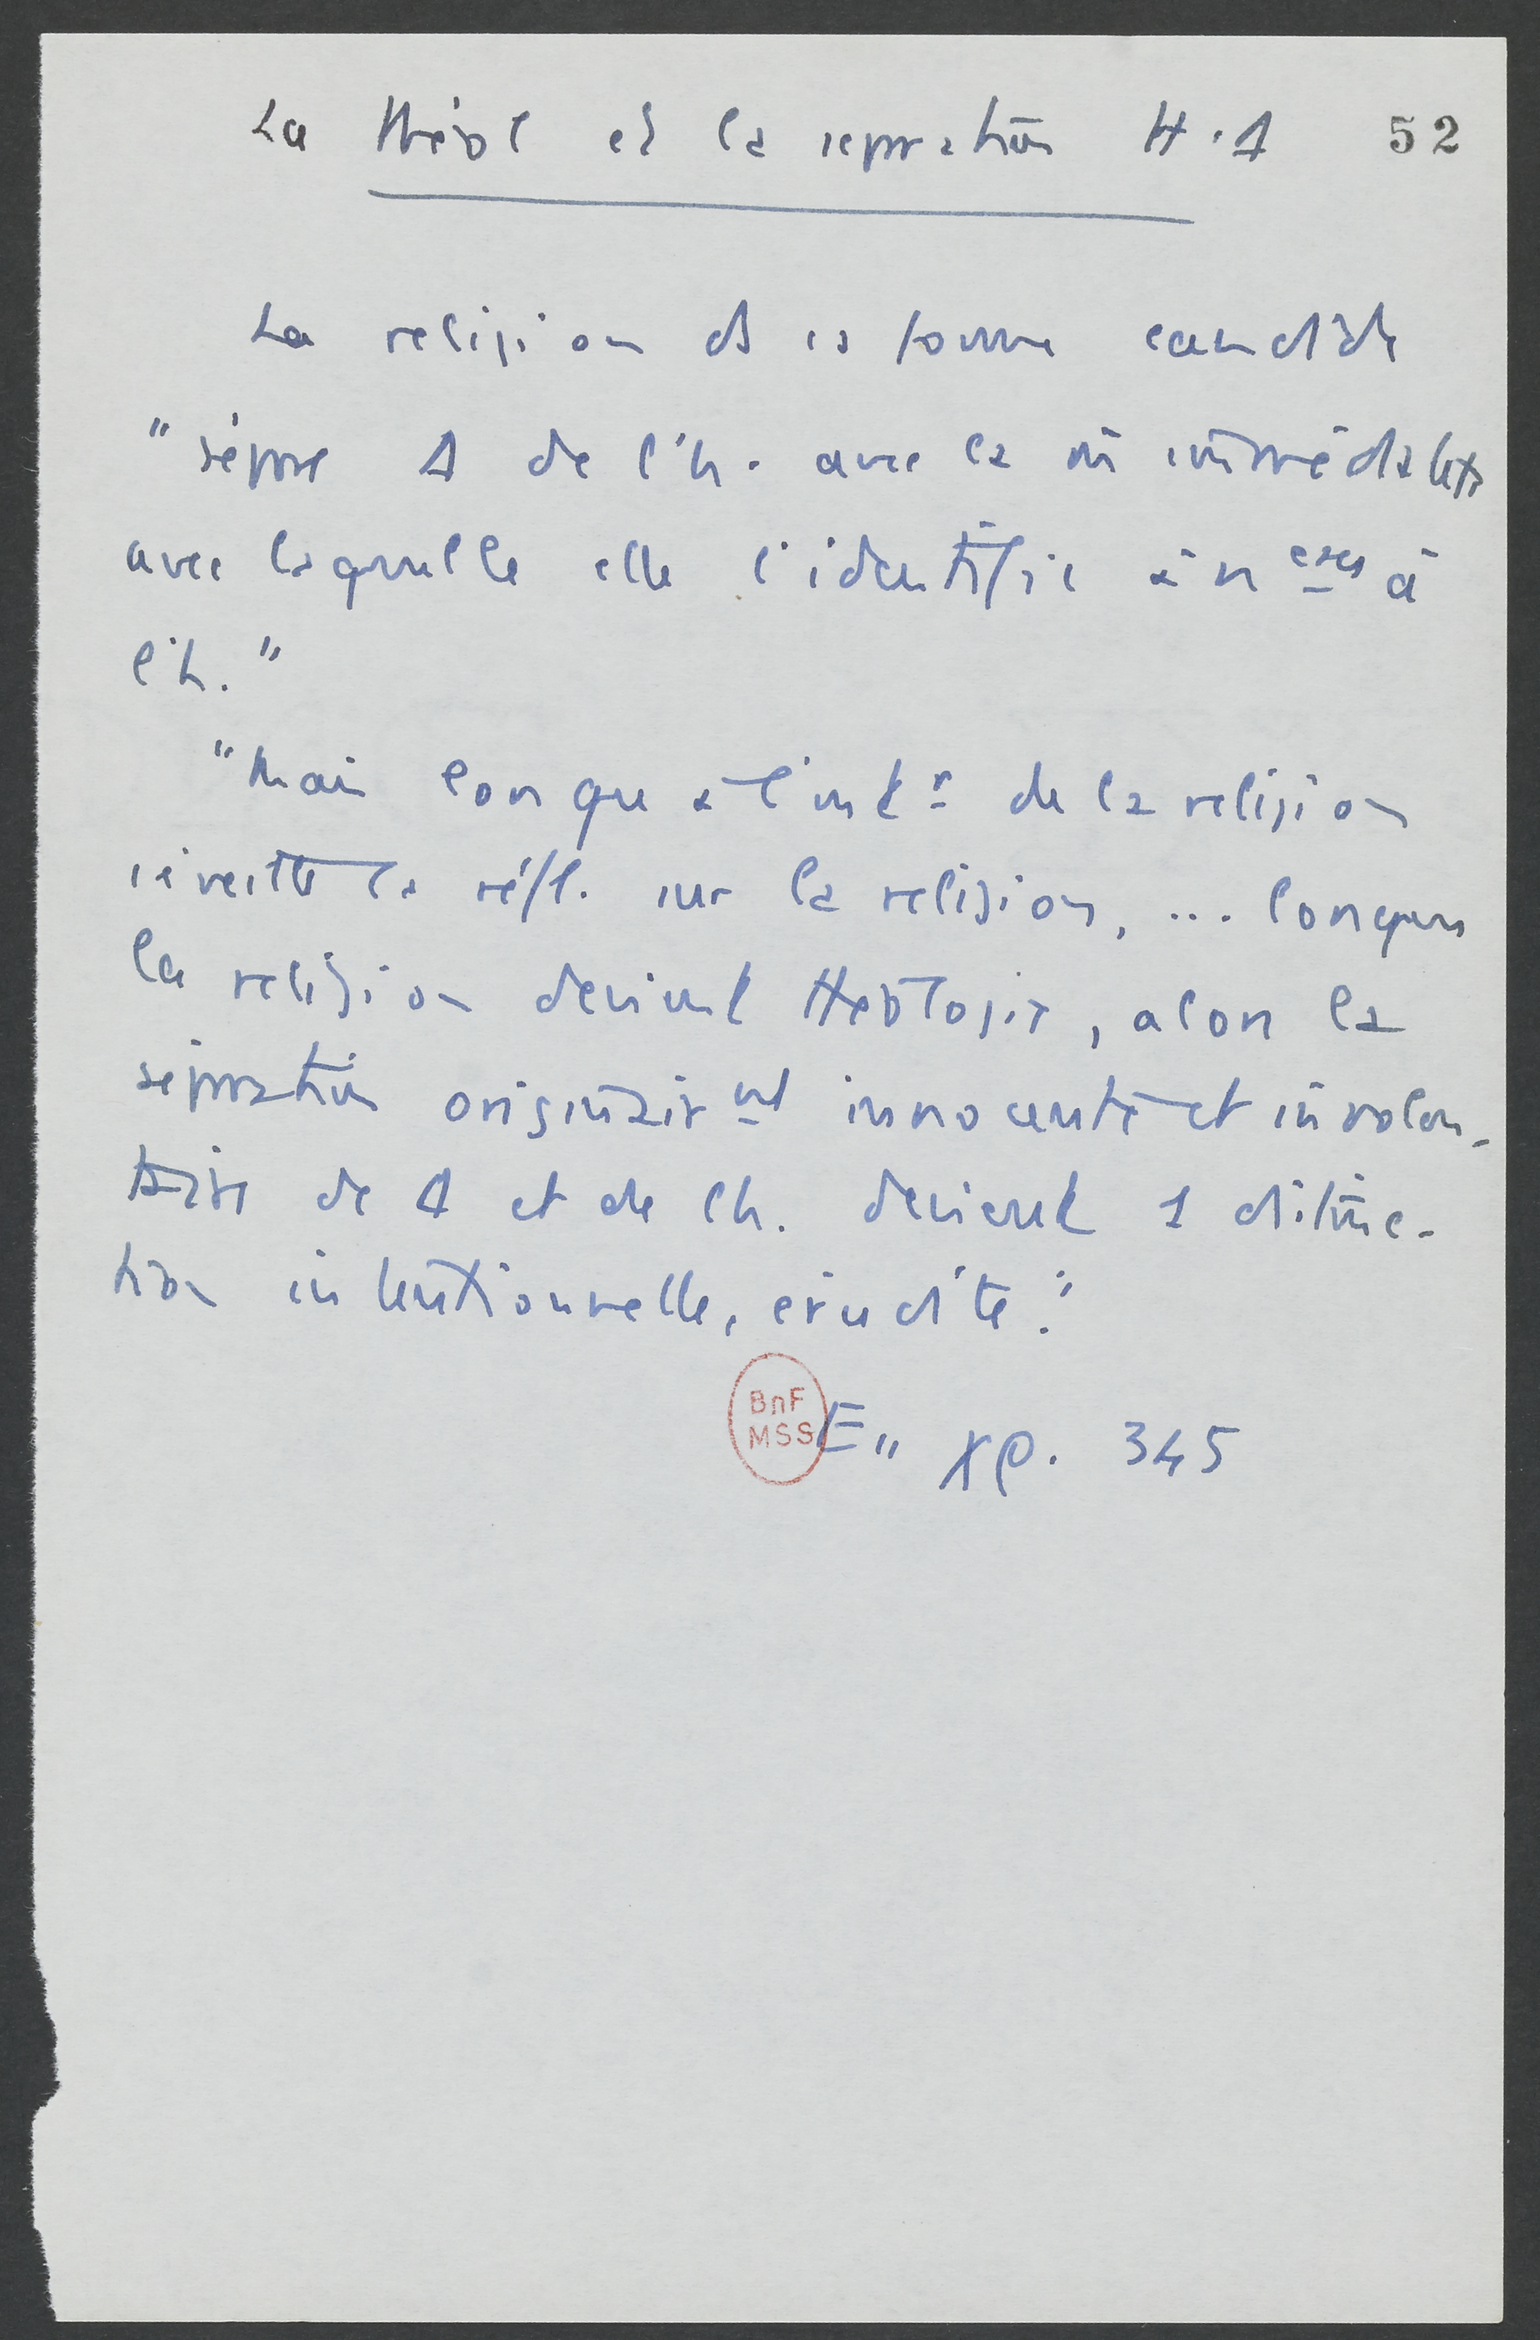 La théol et la separation H. Δ 52
La religion ds sa forme candide
"sépare Δ de l'h. avec la m̂ immédiateté
avec laquelle elle l'identifie à n<sup>eau</sup> à
l'h."
"Mais lorsque à l'int<sup>r</sup> de la religion
s'éveille la réfl. sur la religion, ... lorsque
la religion devient théologie, alors la
séparation originair<sup>mt</sup> innocente et involon-
taire de Δ et de l'h. devient 1 distinc-
tion intentionnelle, érudite."
BnF
MSS
E" χρ. 345